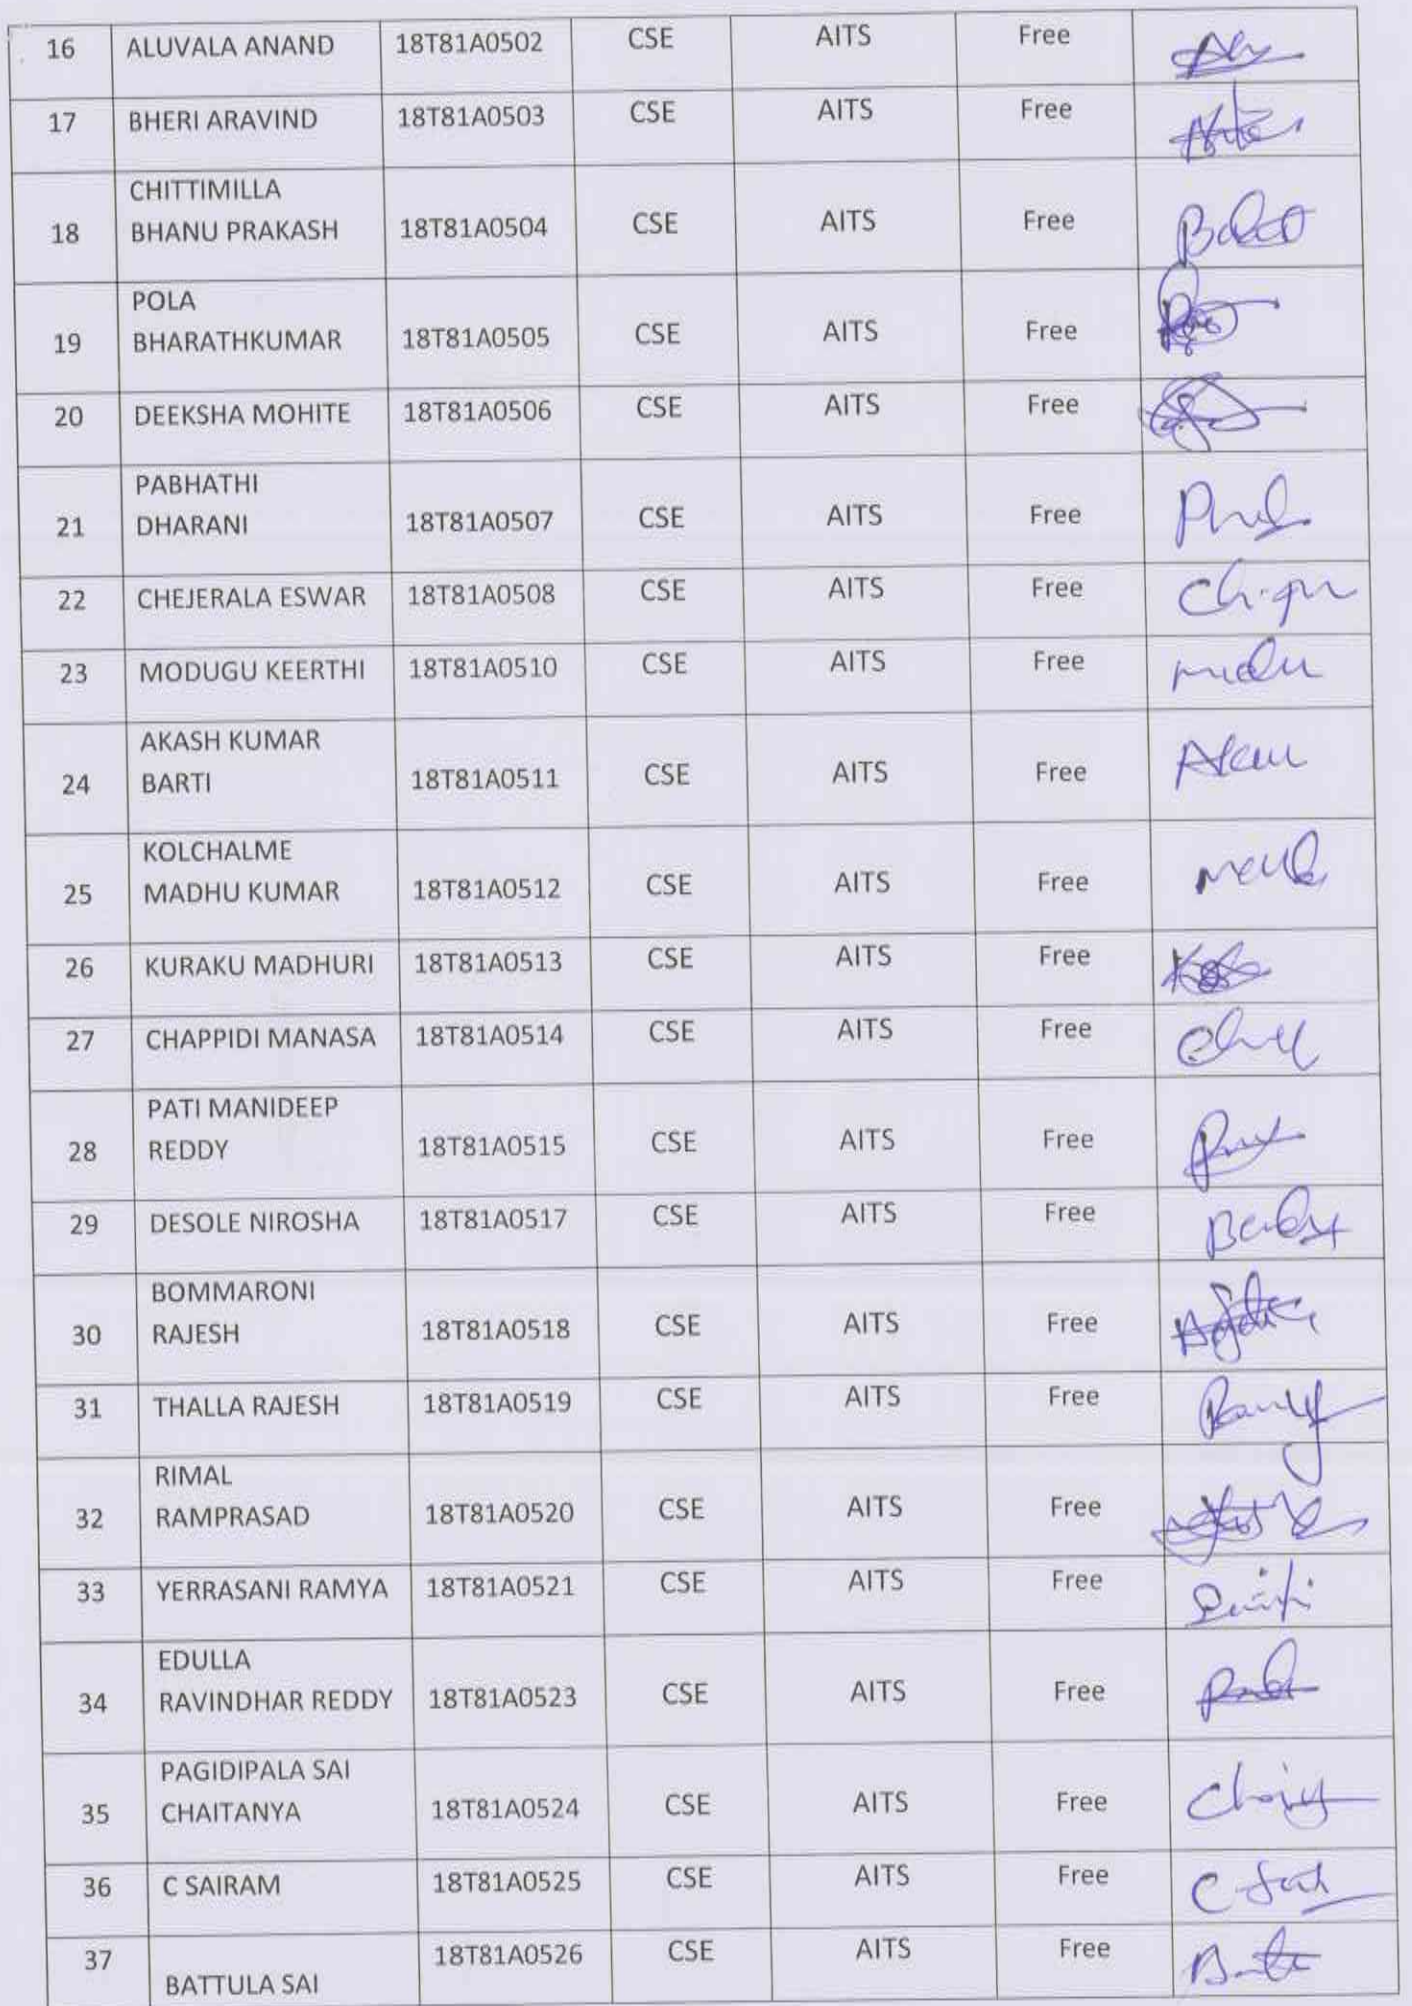 16 ALUVALA ANAND 18T81A0502 CSE AITS Free
17 BHERI ARAVIND 18T81A0503 CSE AITS Free
CHITTIMILLA
18 BHANU PRAKASH 18T81A0504 CSE AITS Free
POLA
19 BHARATHKUMAR 18T81A0505 CSE AITS Free
20 DEEKSHA MOHITE 18T81A0506 CSE AITS Free
PABHATHI
21 DHARANI 18T81A0507 CSE AITS Free
22 CHEJERALA ESWAR 18T81A0508 CSE AITS Free
23 MODUGU KEERTHI 18T81A0510 CSE AITS Free
AKASH KUMAR
24 BARTI 18T81A0511 CSE AITS Free
KOLCHALME
25 MADHU KUMAR 18T81A0512 CSE AITS Free
26 KURAKU MADHURI 18T81A0513 CSE AITS Free
27 CHAPPIDI MANASA 18T81A0514 CSE AITS Free
PATI MANIDEEP
28 REDDY 18T81A0515 CSE AITS Free
29 DESOLE NIROSHA 18T81A0517 CSE AITS Free
BOMMARONI
30 RAJESH 18T81A0518 CSE AITS Free
31 THALLA RAJESH 18T81A0519 CSE AITS Free
RIMAL
32 RAMPRASAD 18T81A0520 CSE AITS Free
33 YERRASANI RAMYA 18T81A0521 CSE AITS Free
EDULLA
34 RAVINDHAR REDDY 18T81A0523 CSE AITS Free
PAGIDIPALA SAI
35 CHAITANYA 18T81A0524 CSE AITS Free
36 C SAIRAM 18T81A0525 CSE AITS Free
37 18T81A0526 CSE AITS Free
BATTULA SAI